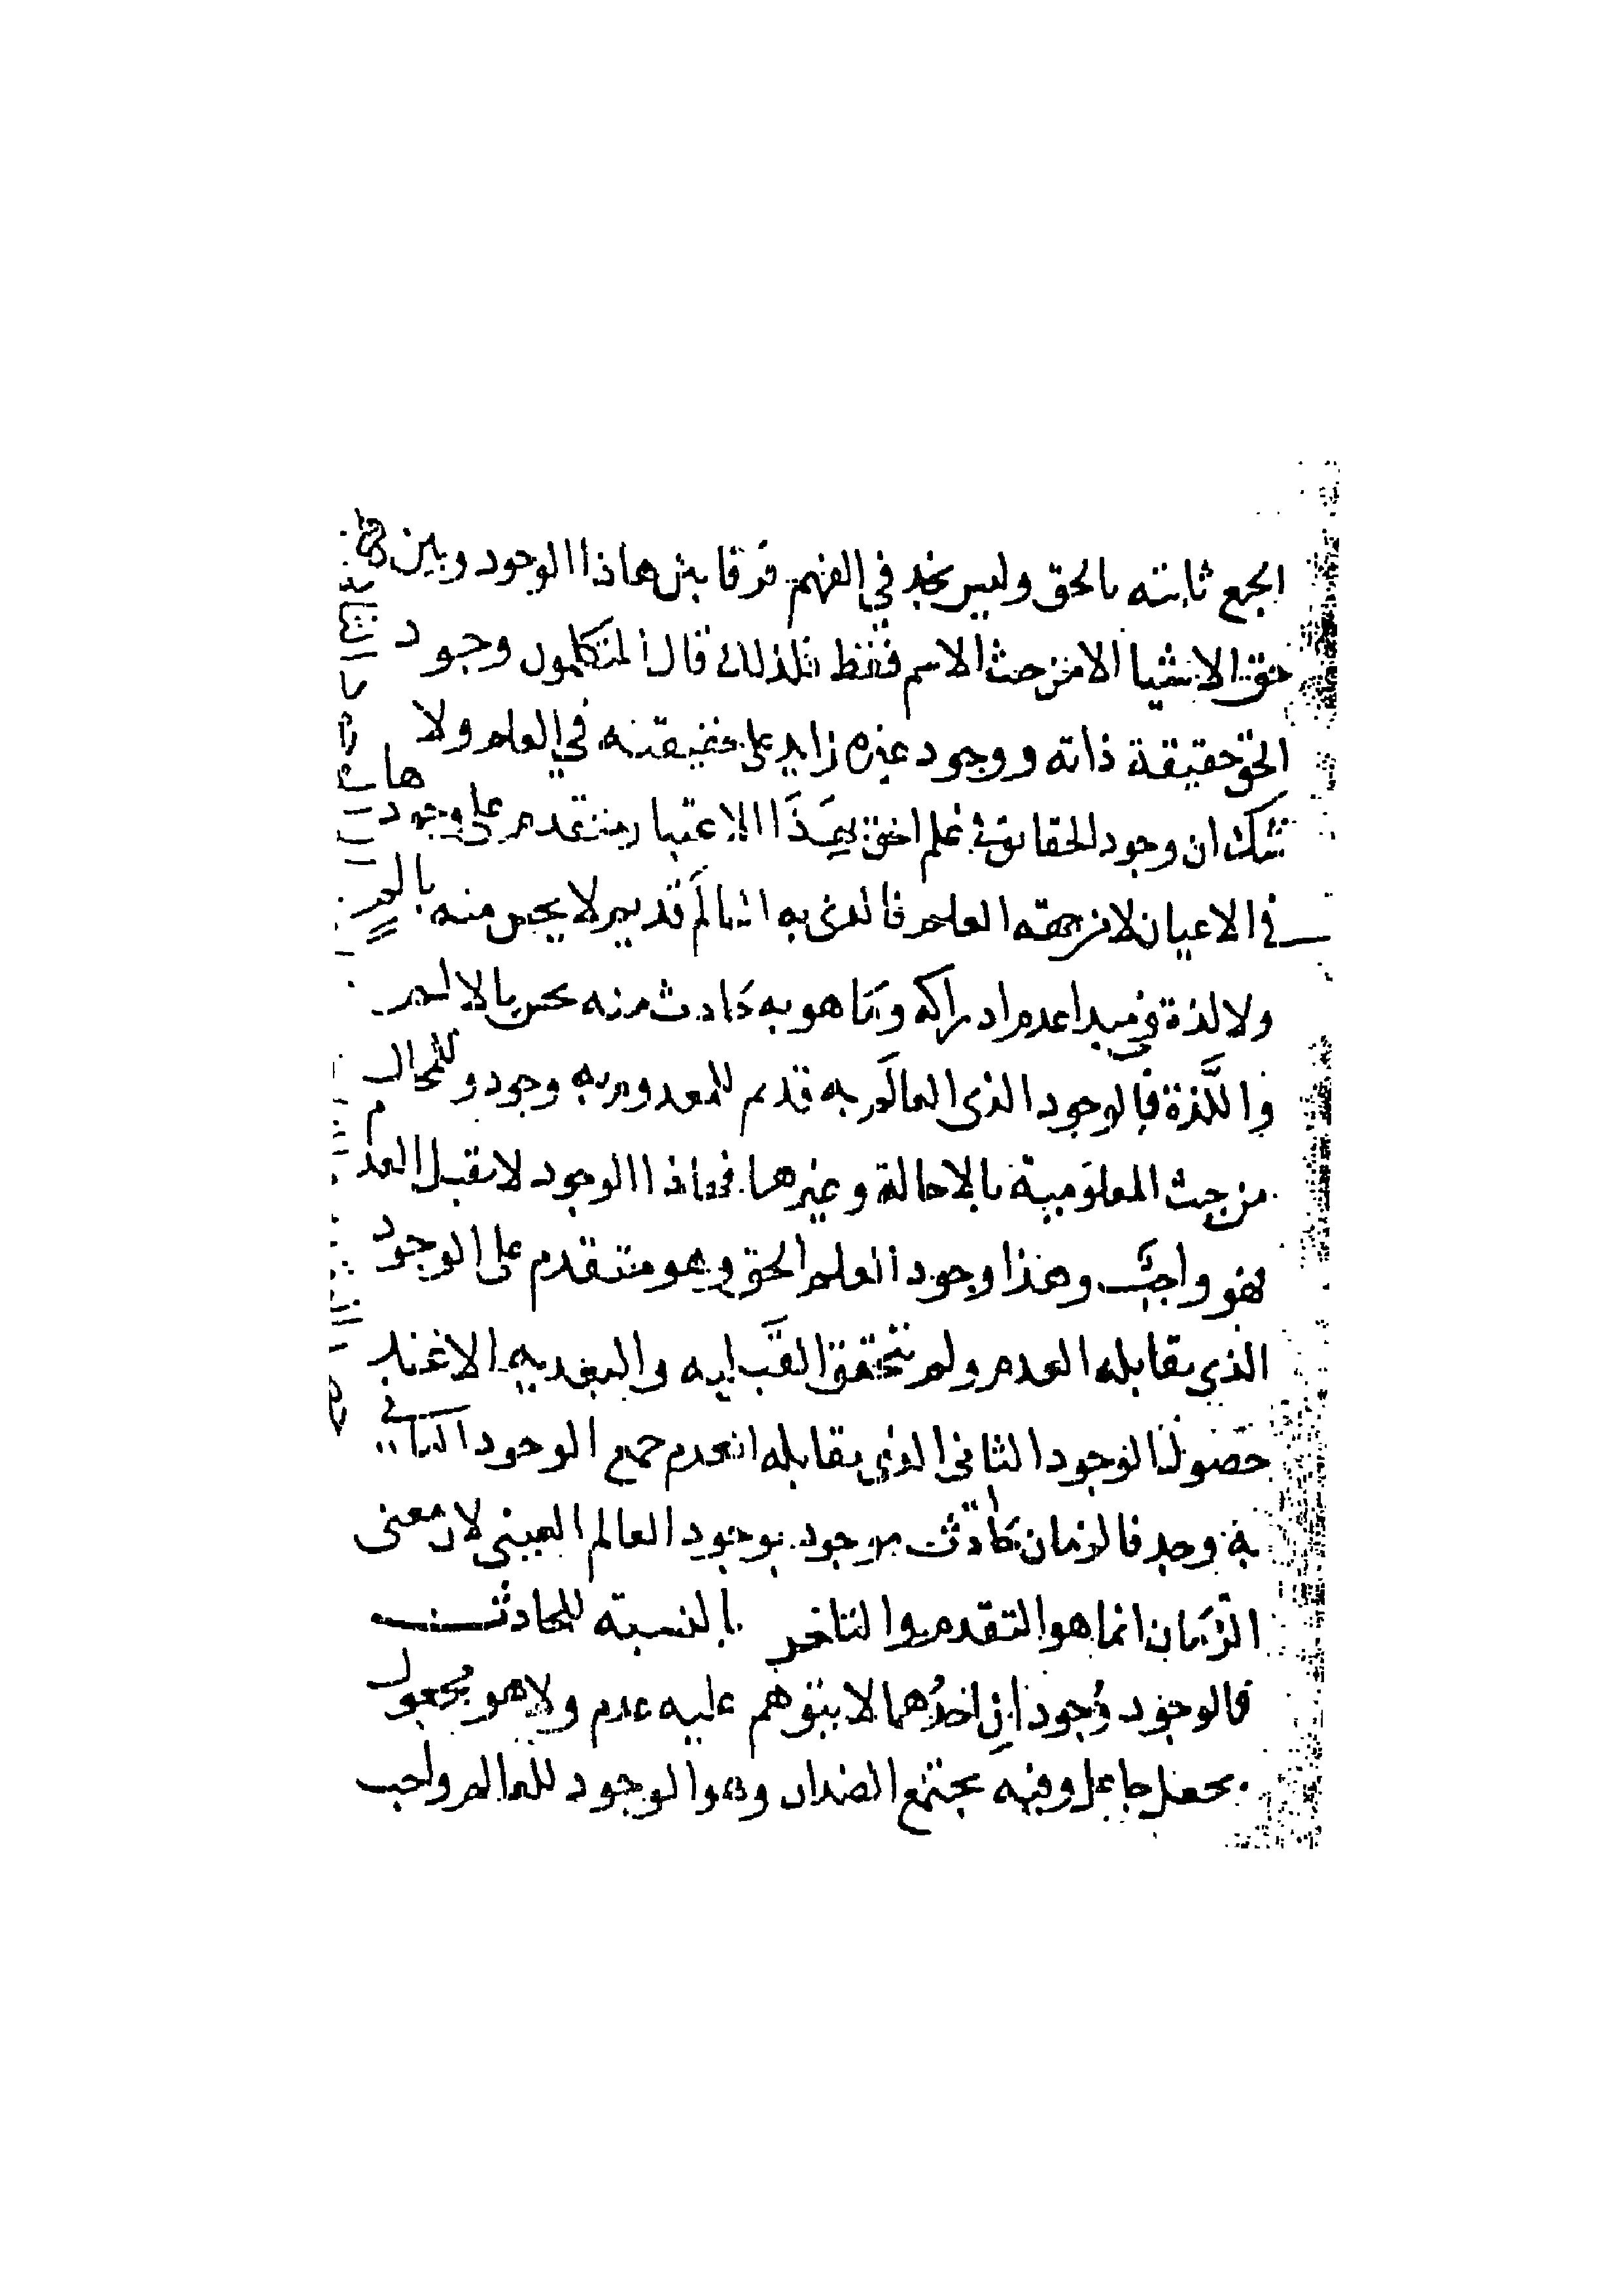 الجمع ثابته بالحق وليس نجد في الفهم فرقا بين هاذا الوجود وبين
حق الاشيا الا من حيث الاسم فقط فلذلك قال المتكلمون وجود
الحق حقيقة ذاته ووجود غيره زايد على حقيقته في العلم ولا
شك ان وجود الحقائق في علم الحق بهذا الاعتبار متقدم على وجودها
في الاعيان لا من جهة العلم فالذي به العالم قديم لا يحس منه بالم
ولا لذة في مبدا عدم ادراكه وما هو به حادث منه يحس بالالم
واللذة فالوجود الذي العالم به قديم للمعدوم به وجود وللمحال
من حيث المعلومية بالاحالة وغيرها فهاذا الوجود لا يقبل العدم
فهو واجب وهذا وجود العلم الحق وهو متقدم على الوجود
الذي يقابله العدم ولم تتحقق القبليه والبعديه الا عند
حصول الوجود الثاني الذي يقابله العدم جمع الوجود الثاني
به وجد فالزمان حادث موجود بوجود العالم العيني لان معنى
الزمان انما هو التقدم والتاخر بالنسبة للحادث
فالوجود وجودان احدهما لا يتوهم عليه عدم ولا هو بمجعول
بجعل جاعل وفيه يجتمع الضدان وهو الوجود للعالم واجب